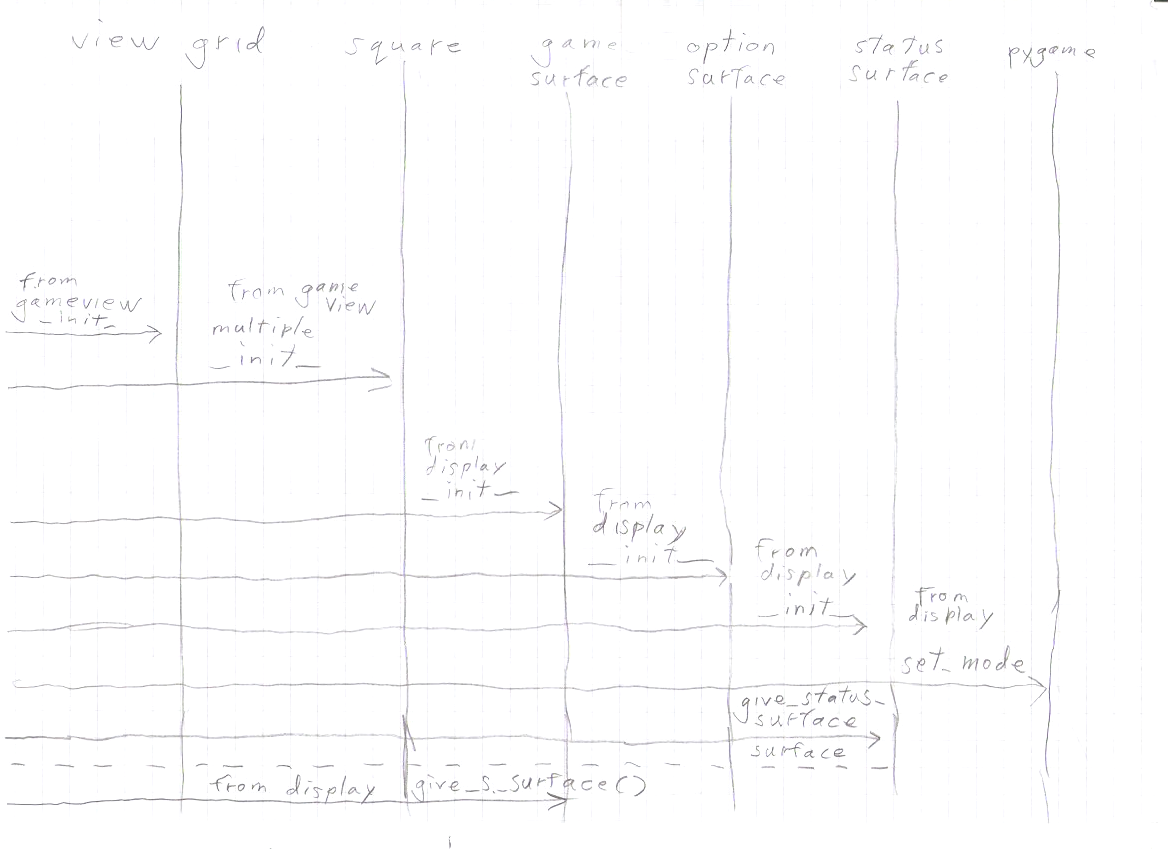 view grid
square
game
surface
option
surface
status
surface
pygame
from
gameview
_init_
from game
view
multiple
_init_
from
display
_init_
from
display
_init_
from
display
_init_
from
display
set_mode
give_status_
surface
surface
from display
give_s._surface()